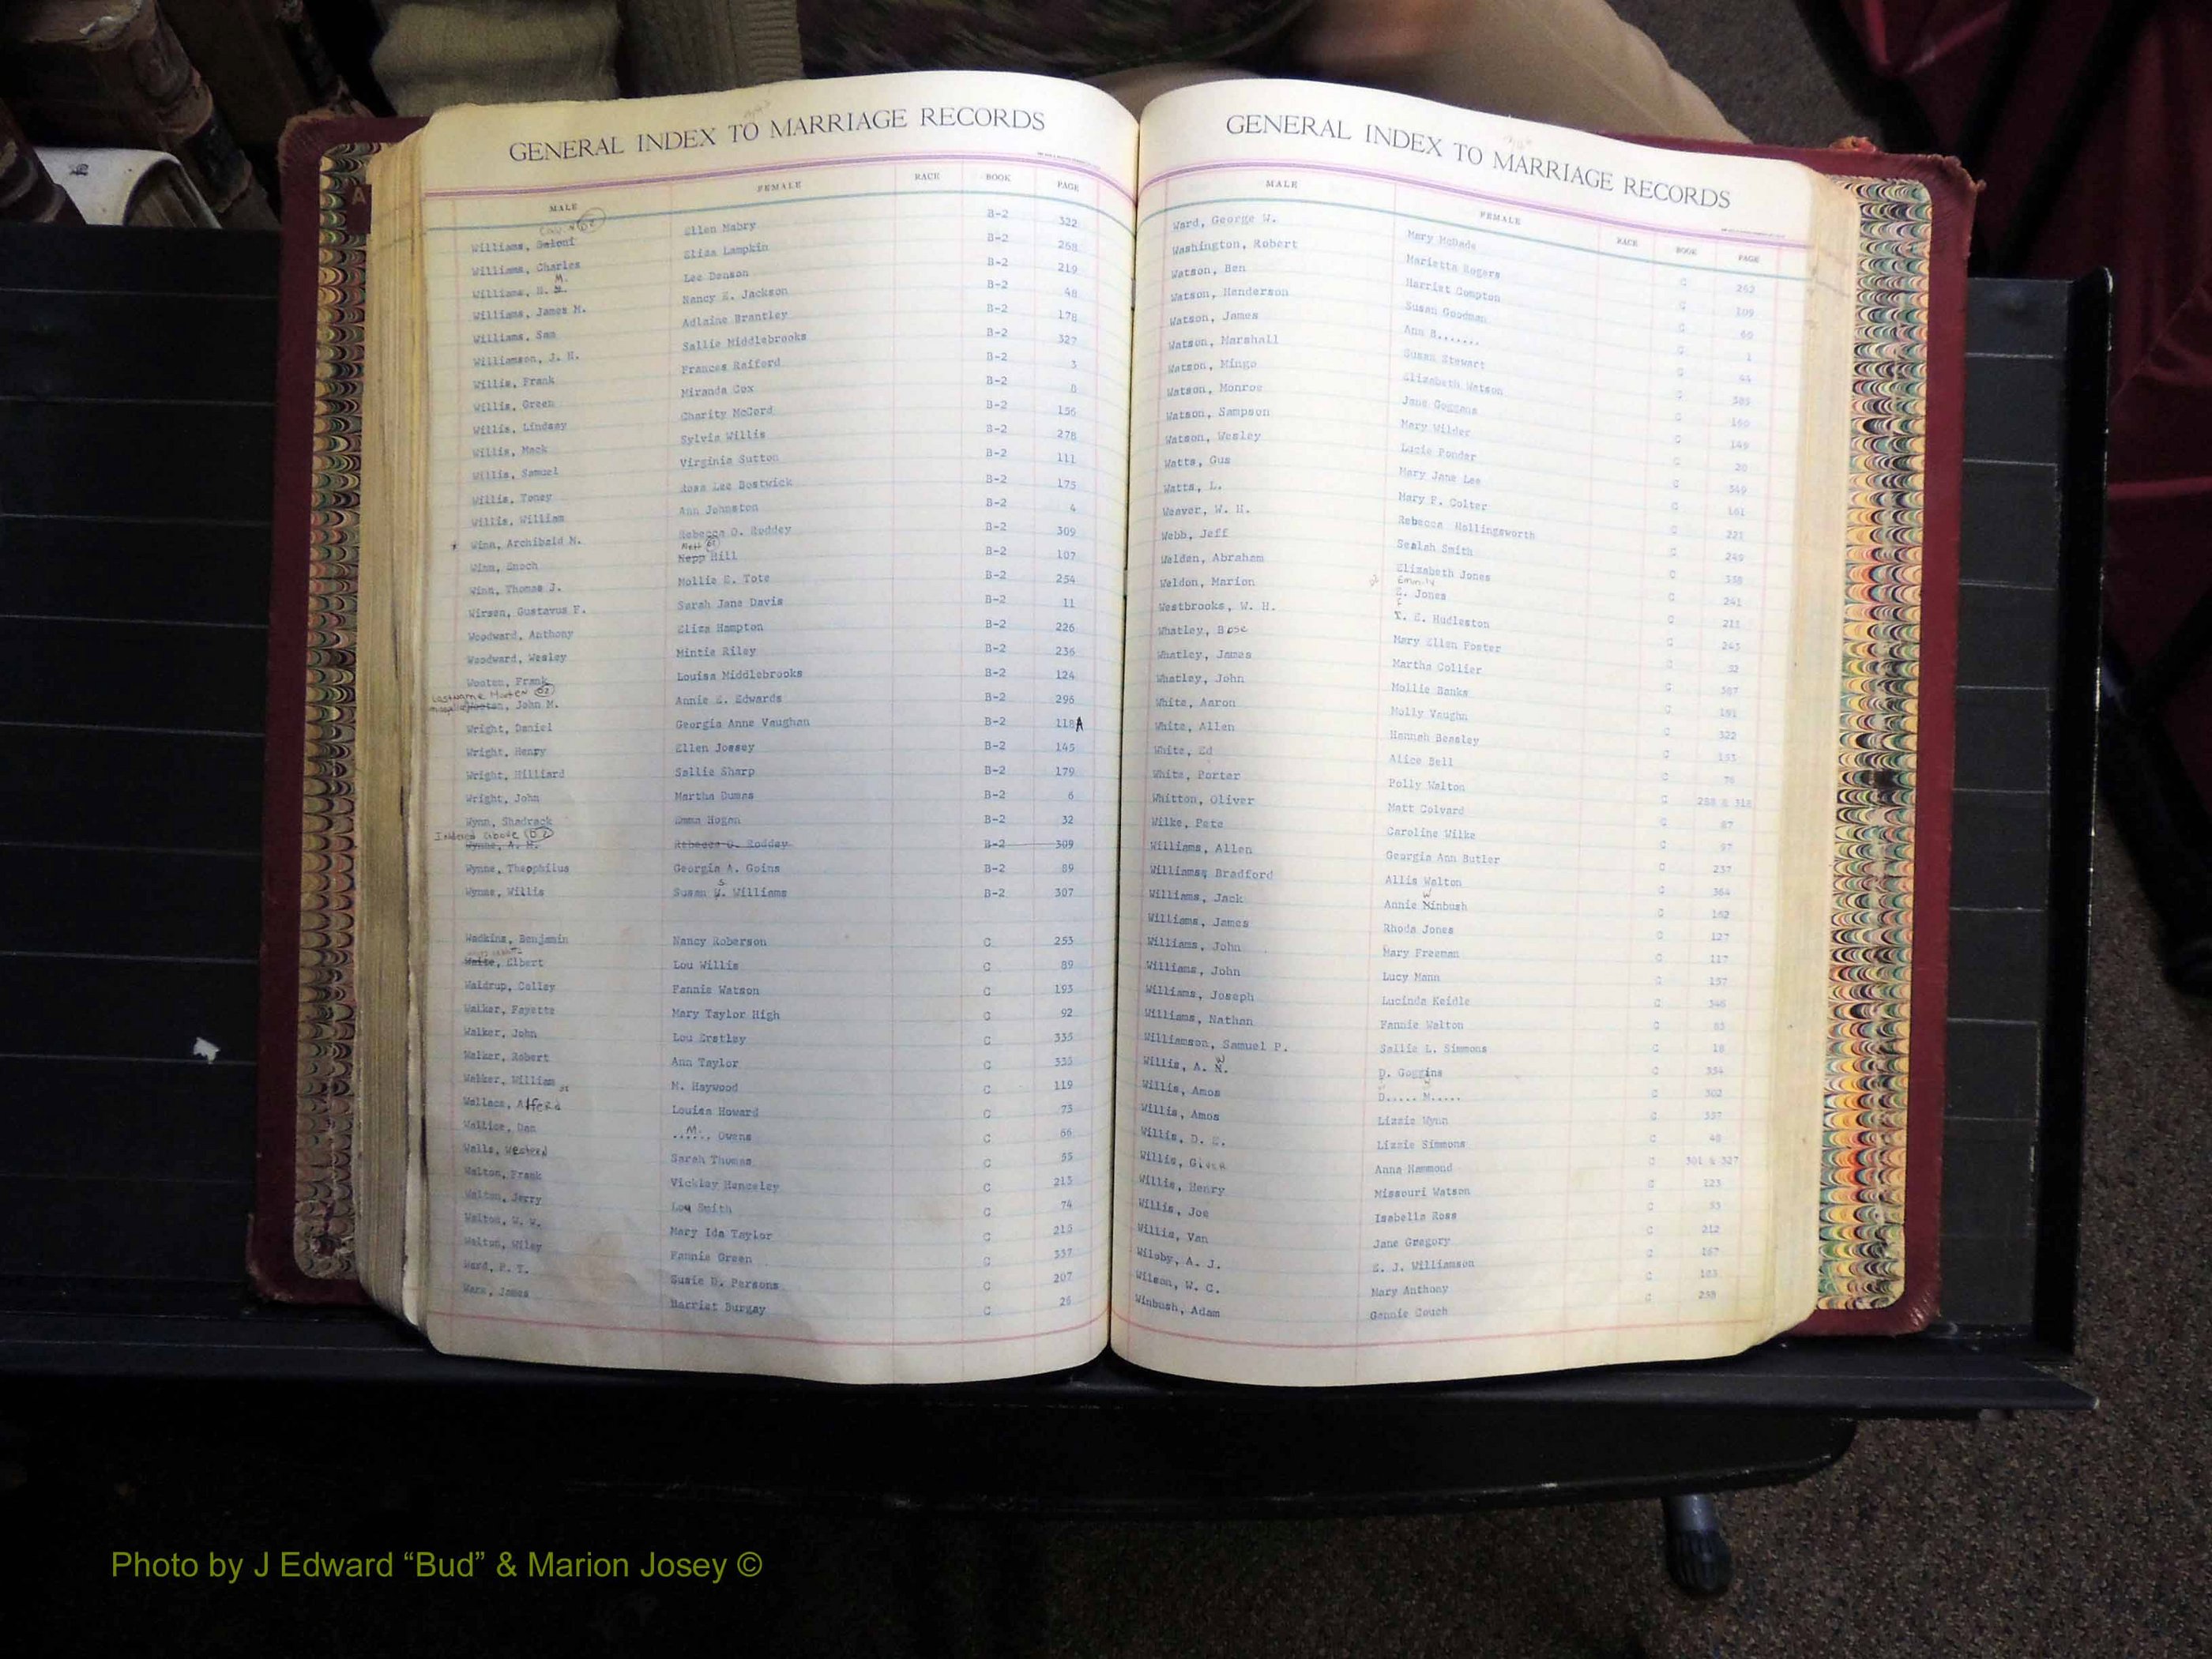 GENERAL INDEX TO MARRIAGE RECORDS
MALE FEMALE RACE BOOK PAGE
Williams, Ellen Mabry B-2 322
Williams, Charles Eliza Lampkin B-2 268
Williams, H. M. Lee Denson B-2 219
Williams, James M. Nancy E. Jackson B-2 48
Williams, Sam Adlaine Brantley B-2 178
Williamson, J. H. Sallie Middlebrooks B-2 327
Willis, Frank Frances Rafford B-2 3
Willis, Green Miranda Cox B-2 8
Willis, Lindsey Charity McCord B-2 156
Willis, Mack Sylvia Willis B-2 278
Willis, Samuel Virginia Sutton B-2 111
Willis, Toney Rosa Lee Bostwick B-2 175
Willis, William Ann Johnston B-2 4
Winn, Archibald M. Rebecca O. Roddey B-2 309
Winn, Enoch Nepp Hill B-2 107
Winn, Thomas J. Mollie E. Tote B-2 254
Wirsen, Gustavus F. Sarah Jane Davis B-2 11
Woodward, Anthony Eliza Hampton B-2 226
Woodward, Wesley Mintie Riley B-2 236
Wooten, Frank Louisa Middlebrooks B-2 124
Wooten, John M. Annie E. Edwards B-2 296
Wright, Daniel Georgia Anne Vaughan B-2 118A
Wright, Henry Ellen Jossey B-2 145
Wright, Hilliard Sallie Sharp B-2 179
Wright, John Martha Dumas B-2 6
Wynn, Shadrack Emma Hogan B-2 32
Indexed above
Wynne, A. M. Rebecca O. Roddey B-2 309
Wynne, Theophilus Georgia A. Goins B-2 89
Wynne, Willis Susan S. Williams B-2 307
Wadkins, Benjamin Nancy Roberson C 253
Waite, Elbert Lou Willis C 89
Waldrup, Colley Fannie Watson C 193
Walker, Fayette Mary Taylor High C 92
Walker, John Lou Erstley C 335
Walker, Robert Ann Taylor C 335
Walker, William M. Haywood C 119
Wallace, Alferd Louisa Howard C 73
Wallice, Dan ..M.., Owens C 66
Walls, Sarah Thomas C 55
Walton, Frank Vickley Henseley C 213
Walton, Jerry Lou Smith C 74
Walton, W. W. Mary Ida Taylor C 215
Walton, Wiley Fannie Green C 337
Ward, P. T. Susie D. Persons C 207
Ware, James Harriet Burgay C 26
GENERAL INDEX TO MARRIAGE RECORDS
MALE FEMALE RACE BOOK PAGE
Ward, George W. Mary McDade C 262
Washington, Robert Marietta Rogers C 109
Watson, Ben Harriet Compton C 60
Watson, Henderson Susan Goodman C 1
Watson, James Ann B....... C 44
Watson, Marshall Susan Stewart C 385
Watson, Mingo Elizabeth Watson C 160
Watson, Monroe Jane Goggans C 149
Watson, Sampson Mary Wilder C 20
Watson, Wesley Lucie Ponder C 349
Watts, Gus Mary Jane Lee C 161
Watts, L. Mary F. Colter C 221
Weaver, W. H. Rebecca Hollingsworth C 249
Webb, Jeff Sealah Smith C 338
Weldon, Abraham Elizabeth Jones C 241
Weldon, Marion E. Jones C 211
Westbrooks, W. H. E. Hudleston C 243
Whatley, Bose Mary Ellen Foster C 92
Whatley, James Martha Collier C 387
Whatley, John Mollie Banks C 191
White, Aaron Molly Vaughn C 322
White, Allen Hannah Beasley C 153
White, Ed Alice Bell C 76
White, Porter Polly Walton C 288 & 318
Whitton, Oliver Matt Colvard C 87
Wilke, Pete Caroline Wilke C 97
Williams, Allen Georgia Ann Butler C 237
Williams, Bradford Allis Walton C 364
Williams, Jack Annie Winbush C 162
Williams, James Rhoda Jones C 127
Williams, John Mary Freeman C 117
Williams, John Lucy Mann C 157
Williams, Joseph Lucinda Keidle C 346
Williams, Nathan Fannie Walton C 83
Williamson, Samuel P. Sallie L. Simmons C 18
Willis, A. W. D. Goggins C 354
Willis, Amos D..... N..... C 302
Willis, Amos Lizzie Wynn C 337
Willis, D. E. Lizzie Simmons C 48
Willis, Anna Hammond C 301 & 327
Willis, Henry Missouri Watson C 123
Willis, Joe Isabella Ross C 53
Willis, Van Jane Gregory C 212
Wiloby, A. J. E. J. Williamson C 167
Wilson, W. C. Mary Anthony C 103
Winbush, Adam Gennie Couch C 258
Photo by J Edward “Bud” & Marion Josey ©